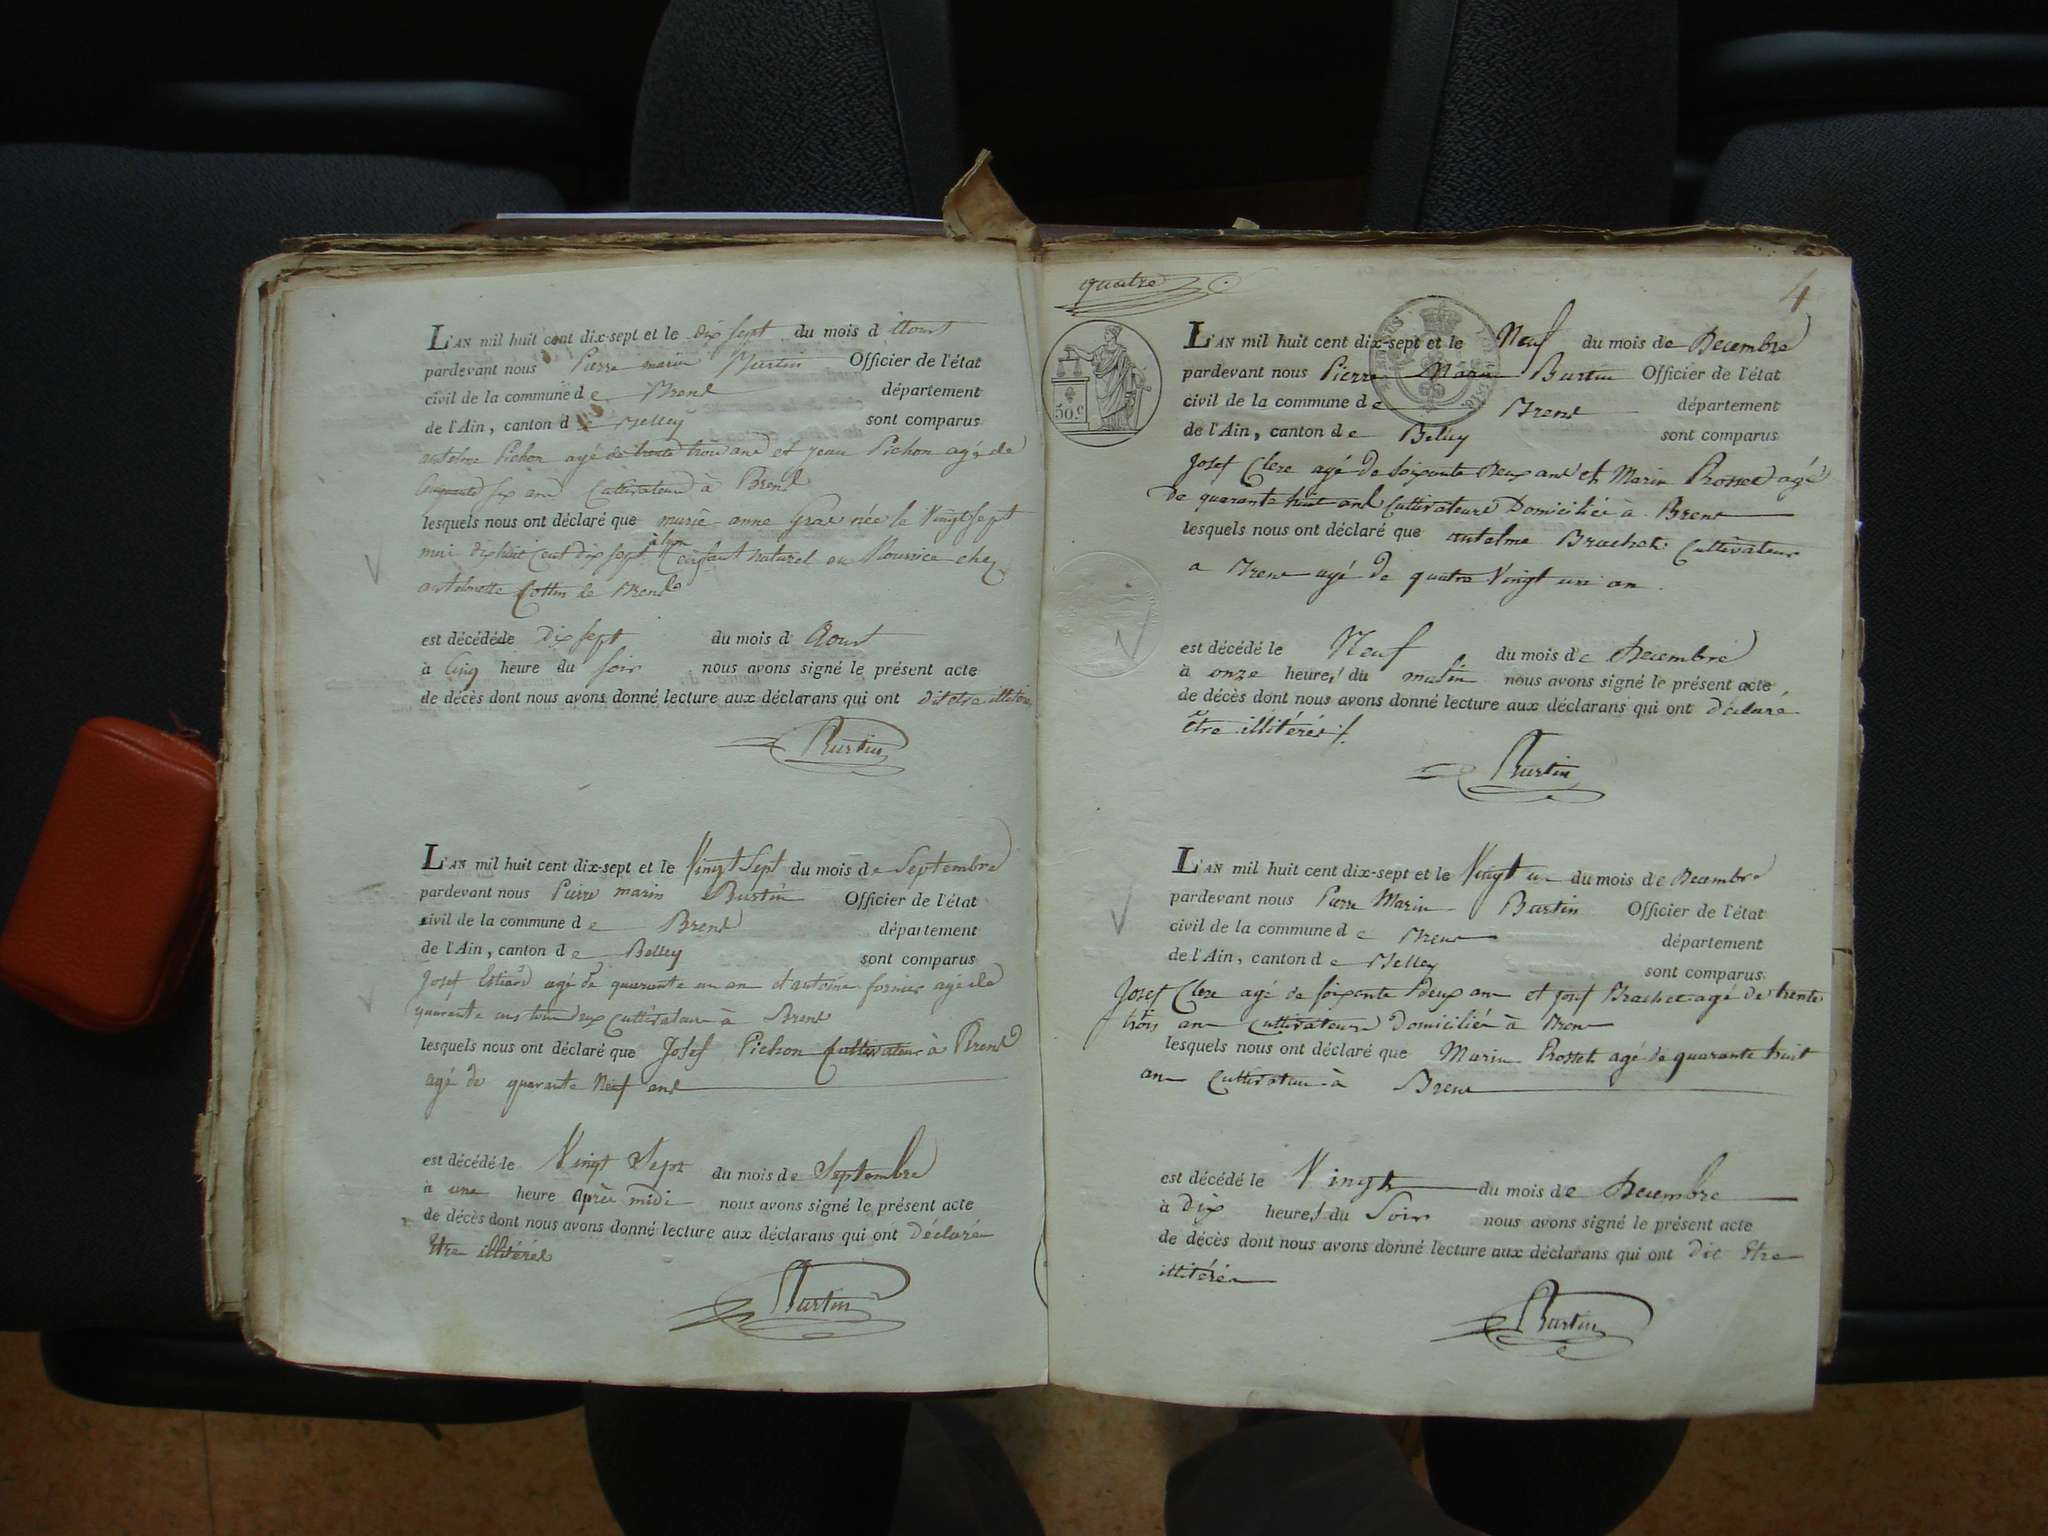 L'AN mil huit cent dix-sept et le Dix sept du mois d'Aoust
pardevant nous Pierre marin Burtin Officier de l'état
civil de la commune de Brens département
de l'Ain, canton de Belley sont comparus
antelme Pichon agé de trente trois ans et jean Pichon agé de
Cinquante six ans Cultivateurs à Brens
lesquels nous ont déclaré que marie-anne née le Vingt sept
mai dix huit Cent dix sept à lyon enfant naturel en Nourrice chez
antelmette Cottin de Brens
est décédée le dix sept du mois d'Aoust
à Cinq heure du soir nous avons signé le présent acte
de décès dont nous avons donné lecture aux déclarans qui ont dit etre
Burtin
L'AN mil huit cent dix-sept et le Vingt Sept du mois de Septembre
pardevant nous Pierre marin Burtin Officier de l'état
civil de la commune de Brens département
de l'Ain, canton de Belley sont comparus
Josef agé de quarante un an et antoine fornier agé de
quarante ans tous deux Cultivateurs à Brens
lesquels nous ont déclaré que Josef Pichon Cultivateur à Brens
agé de quarante Neuf ans
est décédé le Vingt Sept du mois de Septembre
à une heure après midi nous avons signé le présent acte
de décès dont nous avons donné lecture aux déclarans qui ont déclaré
Etre illitérés
Burtin
quatre
4
50 c
L'AN mil huit cent dix-sept et le Neuf du mois de Decembre
pardevant nous Pierre Marin Burtin Officier de l'état
civil de la commune de Brens département
de l'Ain, canton de Belley sont comparus
Josef Clerc agé de soixante deux ans et Marin Rosset agé
de quarante huit ans Cultivateurs Domiciliés à Brens
lesquels nous ont déclaré que antelme Brachet Cultivateur
a Brens agé de quatre Vingt un an
est décédé le Neuf du mois de Decembre
à onze heures du matin nous avons signé le présent acte
de décès dont nous avons donné lecture aux déclarans qui ont déclaré
être illitérés
Burtin
L'AN mil huit cent dix-sept et le Vingt un du mois de Decembre
pardevant nous Pierre Marin Burtin Officier de l'état
civil de la commune de Brens département
de l'Ain, canton de Belley sont comparus
Josef Clerc agé de soixante Deux ans et josef Brachet agé de trente
trois ans Cultivateurs Domiciliés à Brens
lesquels nous ont déclaré que Marin Rosset agé de quarante huit
ans Cultivateur à Brens
est décédé le Vingt du mois de Decembre
à dix heures du Soir nous avons signé le présent acte
de décès dont nous avons donné lecture aux déclarans qui ont dit Etre
illitérés
Burtin